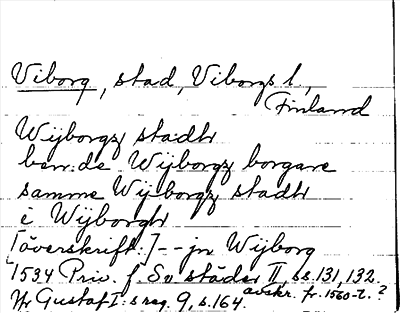 Viborg, stad, Viborgs l,
Finland
Wijborgz stadh
ben:de Wijborgz borgare
samme Wijborgz stadh
i Wijborgh
[överskrift:] -- jn Wijborg
1534 Priv. f. Sv städer II, ss. 131, 132.
avskr. fr. 1560-t.?
Gustaf I:s reg. 9, s. 164.